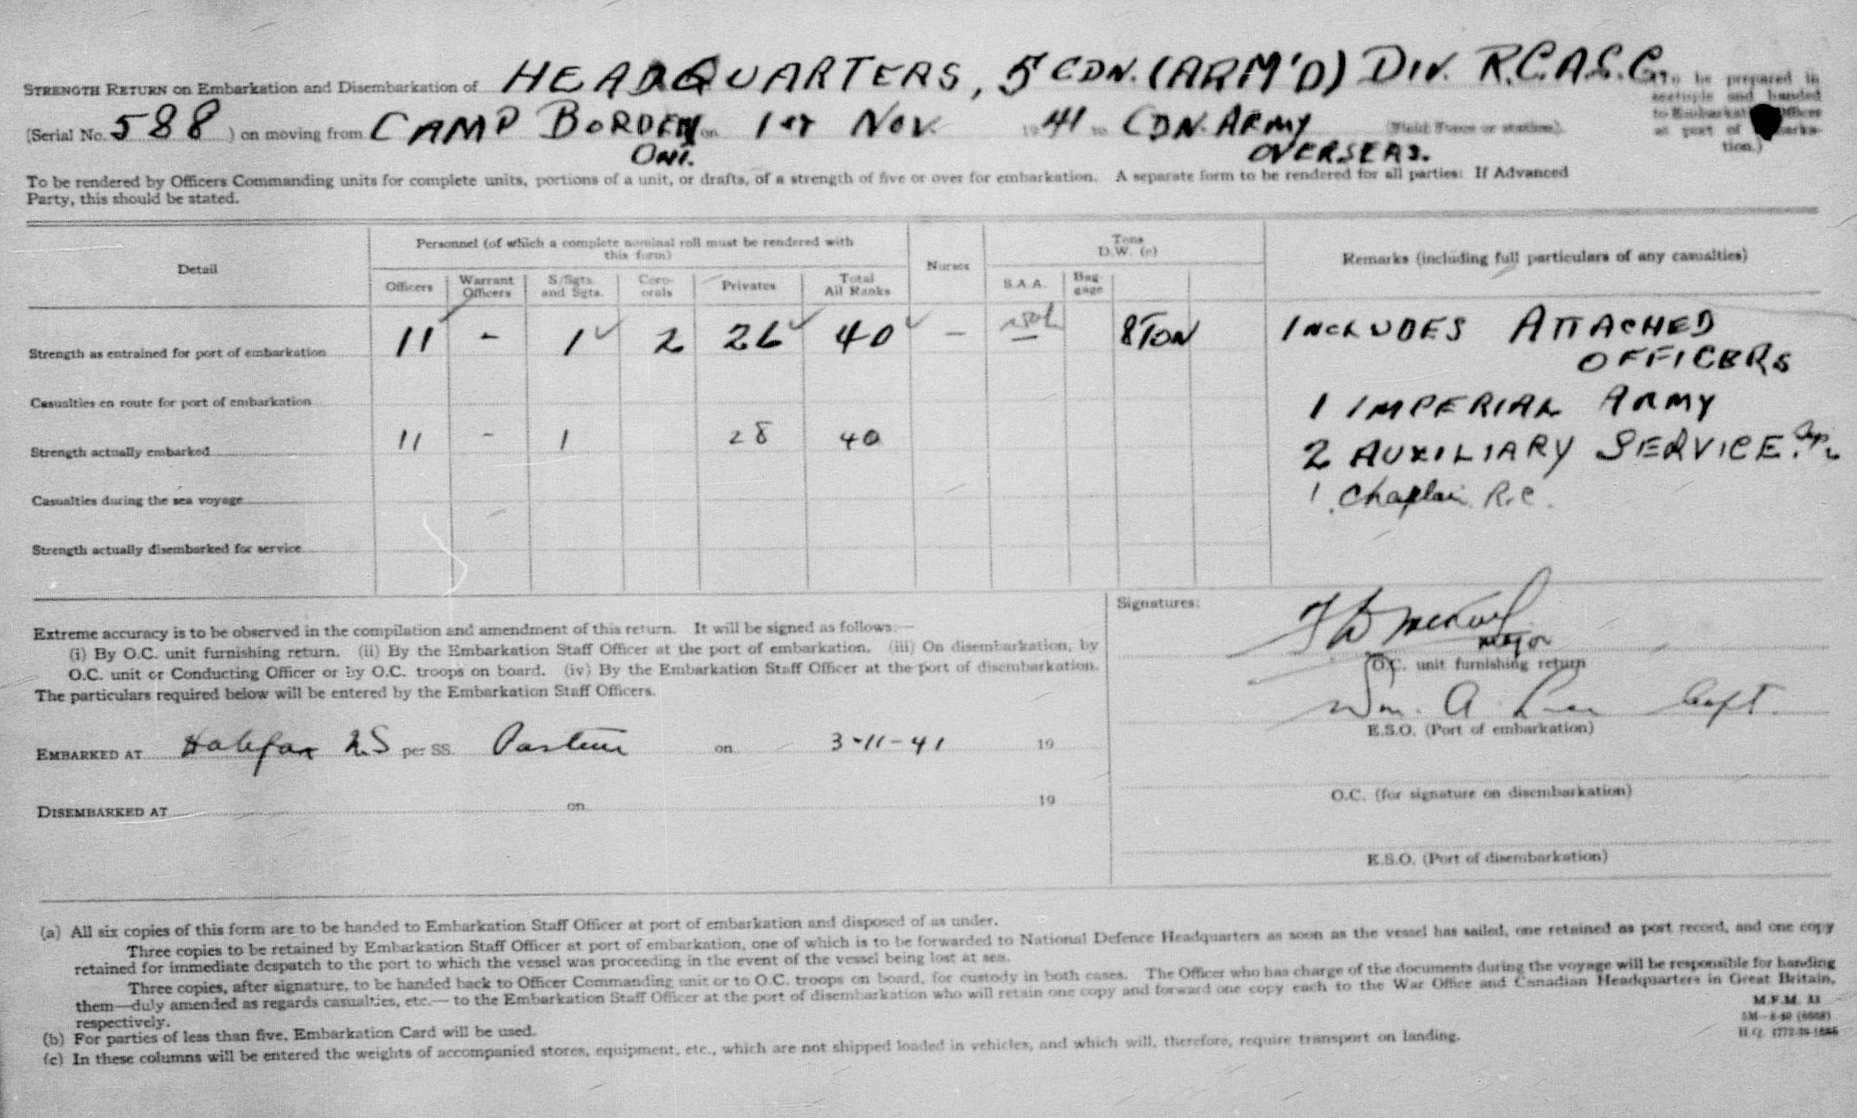 STRENGTH RETURN on Embarkation and Disembarkation of HEADQUARTERS, 5 CDN. (ARM'D) DIV. R.C.A.S.C.
(To be prepared in sextuple and handed to Embarkation Officer at port of Embarkation.)
(Serial No. 588 ) on moving from CAMP BORDEN ONT. on 1ST NOV. 1941 to CDN. ARMY OVERSEAS. (Field Force or station).
To be rendered by Officers Commanding units for complete units, portions of a unit, or drafts, of a strength of five or over for embarkation. A separate form to be rendered for all parties: If Advanced
Party, this should be stated.
Detail
Personnel (of which a complete nominal roll must be rendered with
this form)
Nurses
Tons
D.W. (c)
Remarks (including full particulars of any casualties)
Officers Warrant Officers S/Sgts. and Sgts. Corporals Privates Total All Ranks S.A.A. Baggage
Strength as entrained for port of embarkation 11 - 1 2 26 40 - 8 TON
Casualties en route for port of embarkation
Strength actually embarked 11 - 1 28 40
Casualties during the sea voyage
Strength actually disembarked for service
INCLUDES ATTACHED
OFFICERS
1 IMPERIAL ARMY
2 AUXILIARY SERVICE
1 Chaplain R.C.
Extreme accuracy is to be observed in the compilation and amendment of this return. It will be signed as follows:—
(i) By O.C. unit furnishing return. (ii) By the Embarkation Staff Officer at the port of embarkation. (iii) On disembarkation, by
O.C. unit or Conducting Officer or by O.C. troops on board. (iv) By the Embarkation Staff Officer at the port of disembarkation.
The particulars required below will be entered by the Embarkation Staff Officers.
EMBARKED AT Halifax NS per SS. Pasteur on 3-11-41 19
DISEMBARKED AT on 19
Signatures:
Major
O.C. unit furnishing return
Wm. A. Capt.
E.S.O. (Port of embarkation)
O.C. (for signature on disembarkation)
E.S.O. (Port of disembarkation)
(a) All six copies of this form are to be handed to Embarkation Staff Officer at port of embarkation and disposed of as under.
Three copies to be retained by Embarkation Staff Officer at port of embarkation, one of which is to be forwarded to National Defence Headquarters as soon as the vessel has sailed, one retained as port record, and one copy
retained for immediate despatch to the port to which the vessel was proceeding in the event of the vessel being lost at sea.
Three copies, after signature, to be handed back to Officer Commanding unit or to O.C. troops on board, for custody in both cases. The Officer who has charge of the documents during the voyage will be responsible for handing
them—duly amended as regards casualties, etc.—to the Embarkation Staff Officer at the port of disembarkation who will retain one copy and forward one copy each to the War Office and Canadian Headquarters in Great Britain,
respectively.
(b) For parties of less than five, Embarkation Card will be used.
(c) In these columns will be entered the weights of accompanied stores, equipment, etc., which are not shipped loaded in vehicles, and which will, therefore, require transport on landing.
M.F.M.
H.Q.